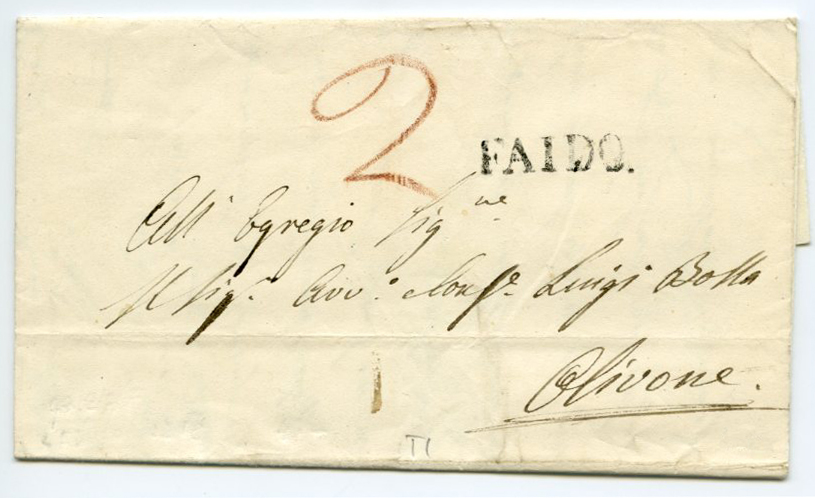 2
FAIDO.
All' Egregio Sig.ne
Il Sig.r Avv.o Cons.e Luigi Bolla
Olivone.
TI